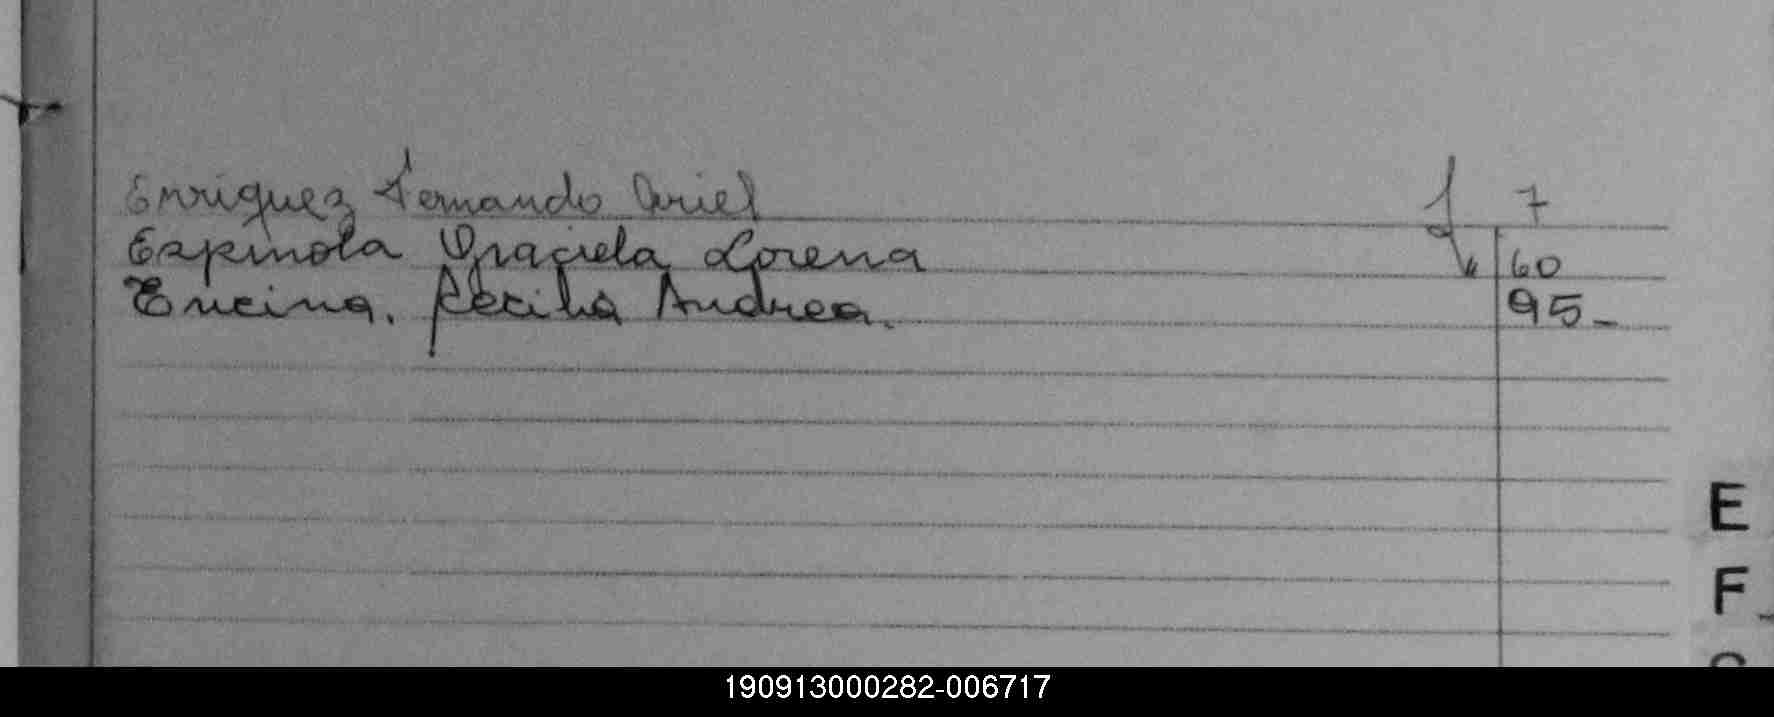 Enriquez Fernando Ariel f 7
Espinola Graciela Lorena " 60
Encina. Cecilia Andrea. 95-
E
F
190913000282-006717